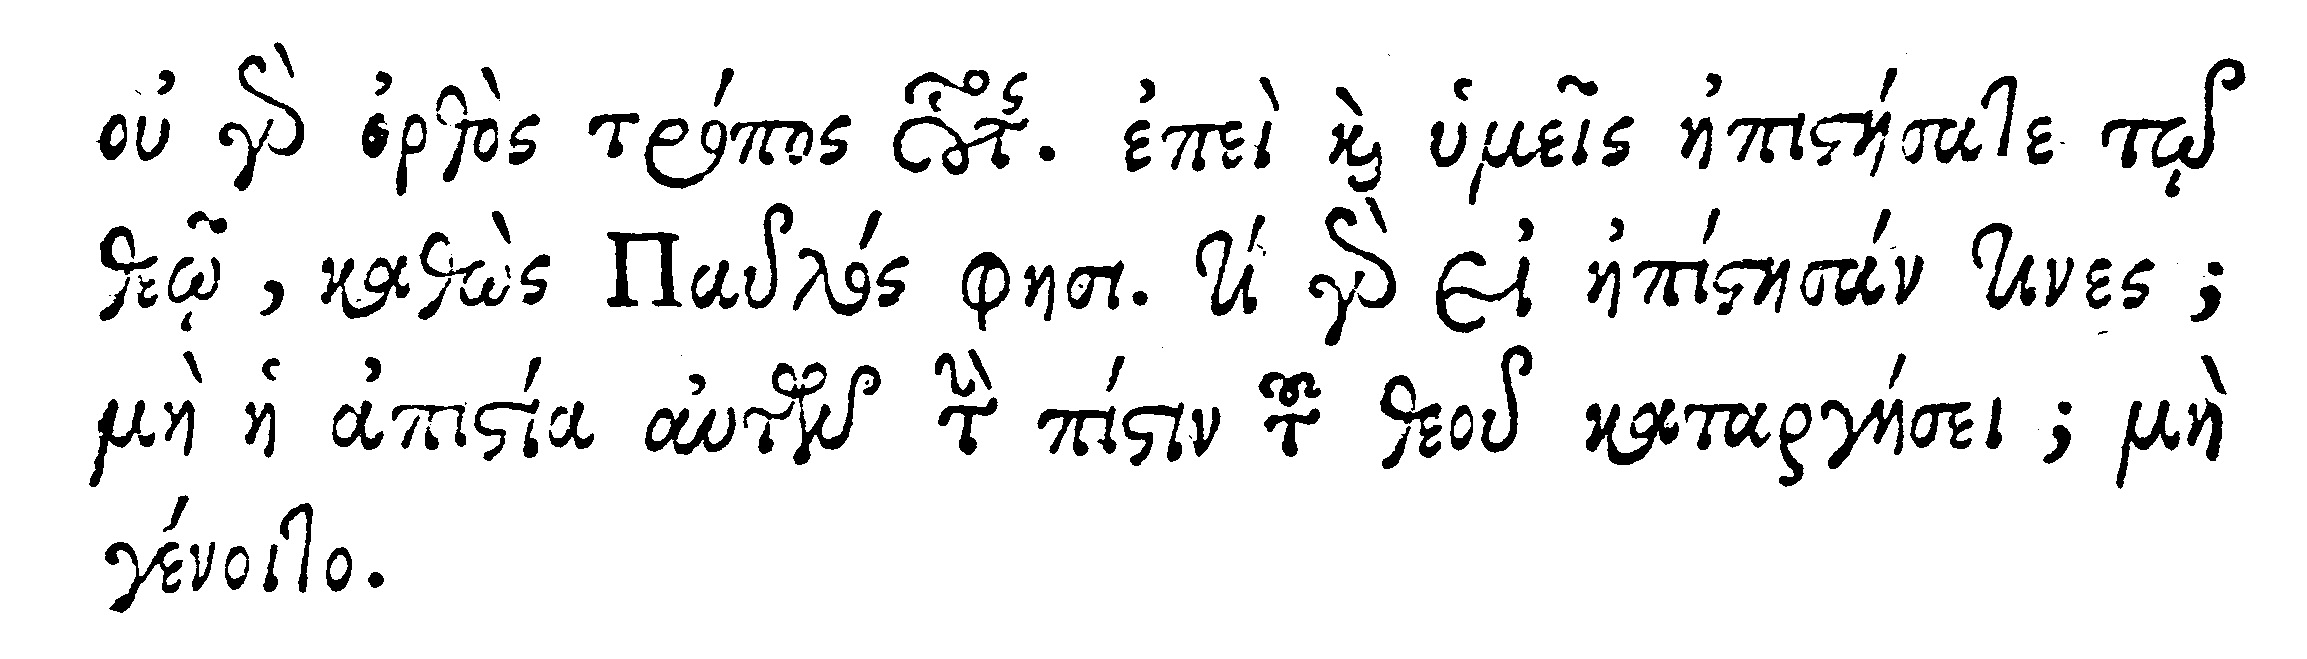 οὐ γὰρ ὀρθὸς τρόπος οὗτος. ἐπεὶ καὶ ὑμεῖς ἠπιστήσατε τῷ
θεῷ, καθὼς Παυλός φησι. τί γὰρ εἰ ἠπίστησάν τινες;
μὴ ἡ ἀπιστία αὐτῶν τὴν πίστιν τοῦ θεοῦ καταργήσει; μὴ
γένοιτο.